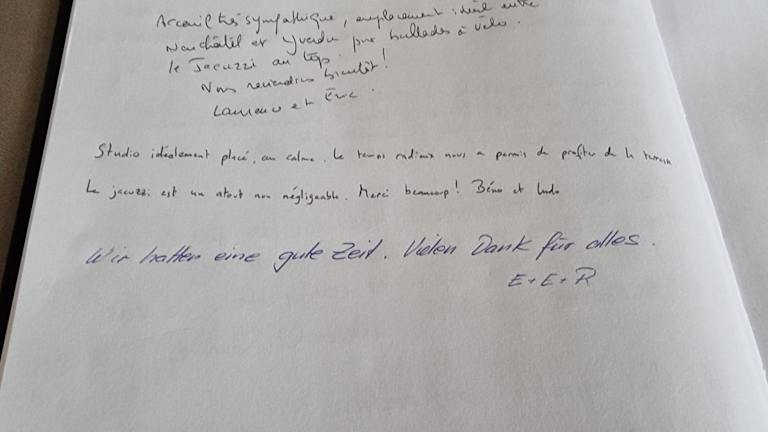 Accueil très sympathique, emplacement idéal entre
Neuchâtel et Yverdon pour ballades à vélo.
le Jacuzzi au top.
Nous reviendrons bientôt!
Laurence et Eric.
Studio idéalement placé, au calme. Le temps radieux nous a permis de profiter de la terrasse
Le jacuzzi est un atout non négligeable. Merci beaucoup! Béno et Ludo
Wir hatten eine gute Zeit. Vielen Dank für alles.
E+E+R